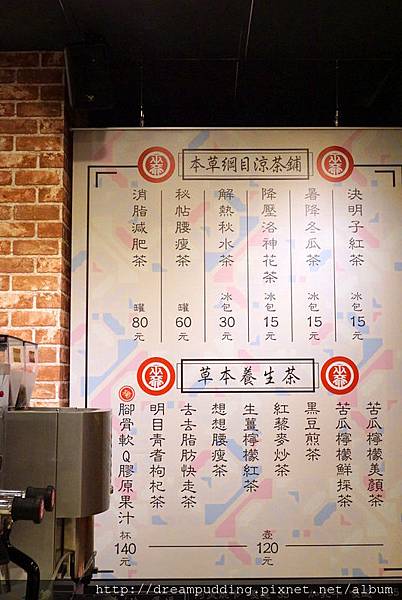 本草綱目涼茶鋪
決明子紅茶 冰包 15元
暑降冬瓜茶 冰包 15元
降壓洛神花茶 冰包 15元
解熱秋水茶 冰包 30元
秘帖腰瘦茶 罐 60元
消脂減肥茶 罐 80元
草本養生茶
苦瓜檸檬美顏茶
苦瓜檸檬鮮採茶
黑豆煎茶
紅藜麥炒茶
生薑檸檬紅茶
想想腰瘦茶
去去脂肪快走茶
明目青耆枸杞茶
壺 120元
腳骨軟Q膠原果汁 杯 140元
http://dreampudding.pixnet.net/album